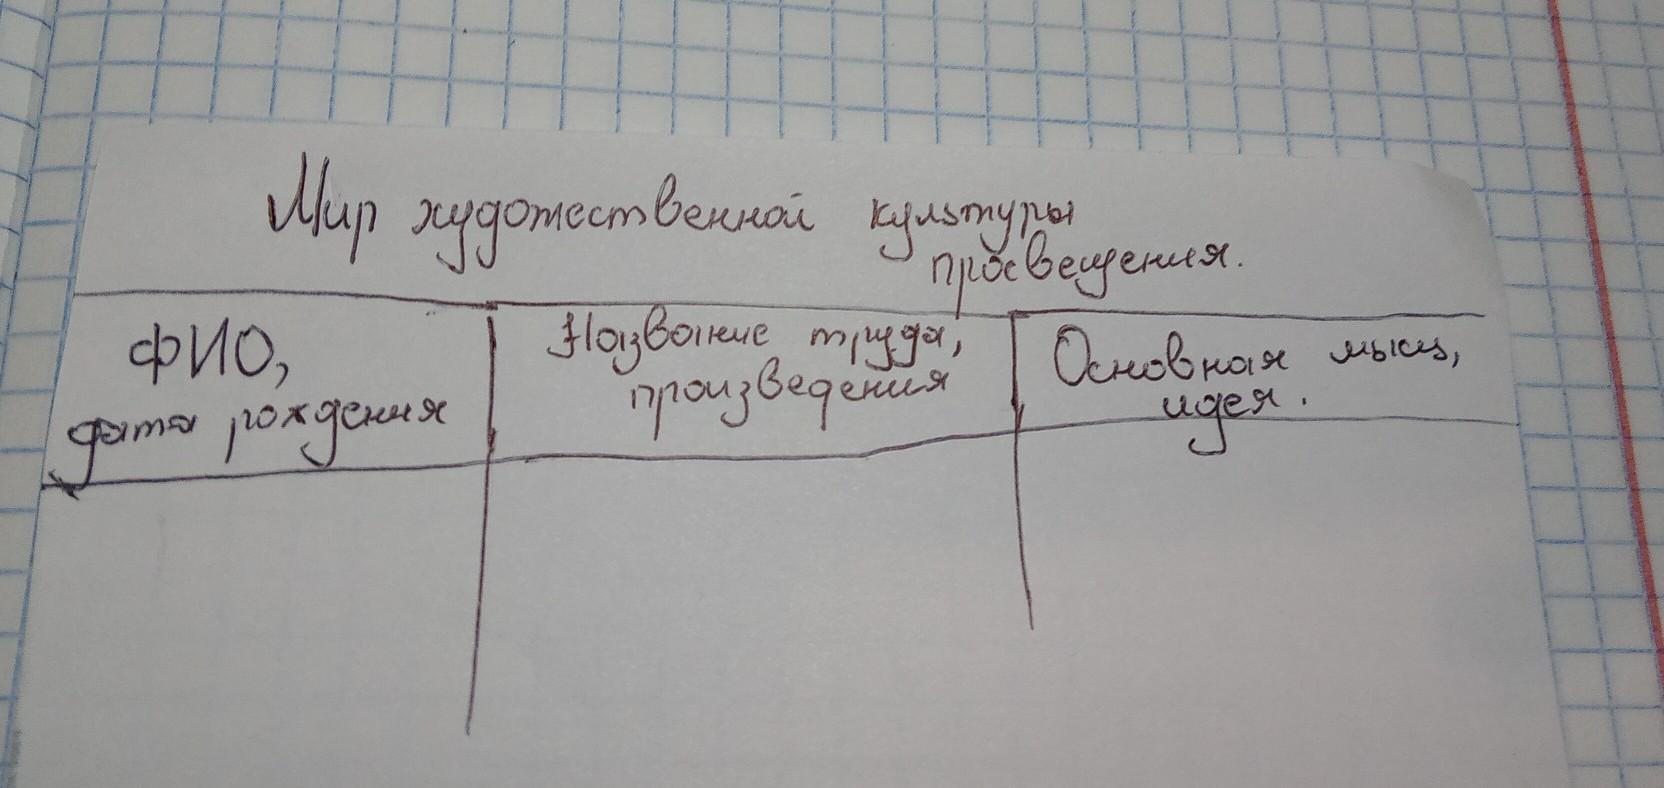 Мир художественной культуры
просвещения.
ФИО,
дата рождения
Название труда,
произведения
Основная мысль,
идея.